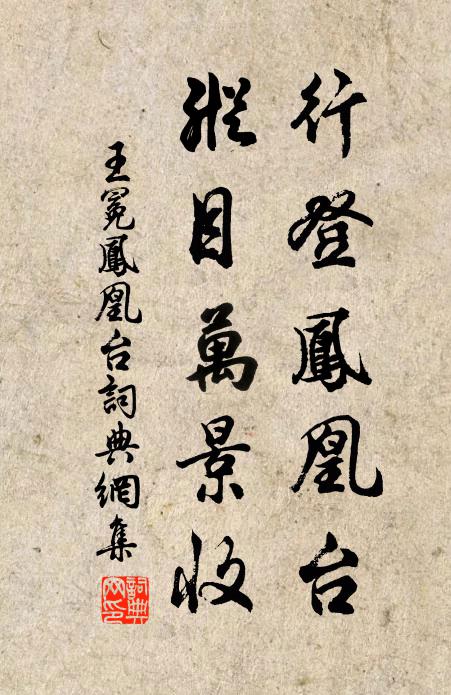 行登鳳凰台
縱目萬景收
王冕鳳凰台詞典網集
詞典網印